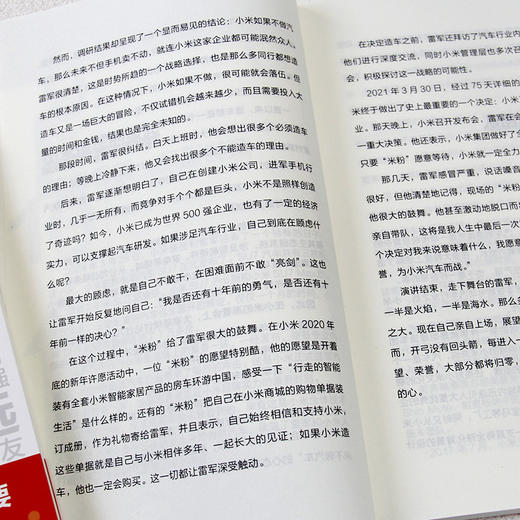 然而，调研结果却呈现了一个显而易见的结论：小米如果不做汽
车，那么未来不但手机卖不动，就连小米这家企业都可能泯然众人。
雷军很清楚，这是时势所趋的一个战略选择，也是那么多同行都想造
车的根本原因。在这种情况下，小米如果不做，很可能就会落伍。但
造车又是一场巨大的冒险，不仅试错机会越来越少，而且需要投入大
量的时间和金钱，结果也是完全未知的。
那段时间，雷军很纠结。白天上班时，他会想出很多个必须造车
的理由；等晚上冷静下来，他又会找出很多个不能造车的理由。
后来，雷军逐渐想明白了，自己在创建小米公司，进军手机行
业时，几乎一无所有，而竞争对手个个都是巨头，小米不是照样创造
了奇迹吗？如今，小米已成为世界 500 强企业，也有了一定的经济
实力，可以支撑起汽车研发。如果涉足汽车行业，自己到底在顾虑什
么呢？
最大的顾虑，就是自己不敢干，在困难面前不敢“亮剑”。这也
让雷军开始反复地问自己：“我是否还有十年前的勇气，是否还有十
年前一样的决心？”
在这个过程中，“米粉”给了雷军很大的鼓舞。在小米 2020 年
底的新年许愿活动中，一位“米粉”的愿望特别酷，他的愿望是开着
装有全套小米智能家居产品的房车环游中国，感受一下“行走的智能
生活”是什么样的。还有的“米粉”把自己在小米商城的购物单据装
订成册，作为礼物寄给雷军，并且表示，自己始终相信和支持小米，
这些单据就是自己与小米相伴多年、一起长大的见证；如果小米造
车，他也一定会购买。这一切都让雷军深受触动。
在决定造车之前，雷军还拜访了汽车行业内
们进行深度交流，同时小米管理层也多次召
会，积极探讨这一战略的可能性。
2021 年 3 月 30 日，经过 75 天详细的
米终于做出了史上最重要的一个决定：小米
车。那天晚上，小米召开发布会，雷军在
一重大决策。他还表示，小米集团做好了
只要“米粉”愿意等待，小米就一定全力
那几天，雷军感冒严重，说话嗓
很好，但他清楚地记得，现场的“米粉
他很大的鼓舞。他甚至激动地脱口而出
亲自带队，这将是我人生中最后一次
个决定对我来说意味着什么，我愿意
誉，为小米汽车而战。”
演讲结束，走下舞台的雷军，
一半是火焰，一半是海水。那么
之大。现在自己亲自上场，展望
而，开弓没有回头箭，每进入一
望、荣誉，大部分都将归零，
的心。
强
友
要